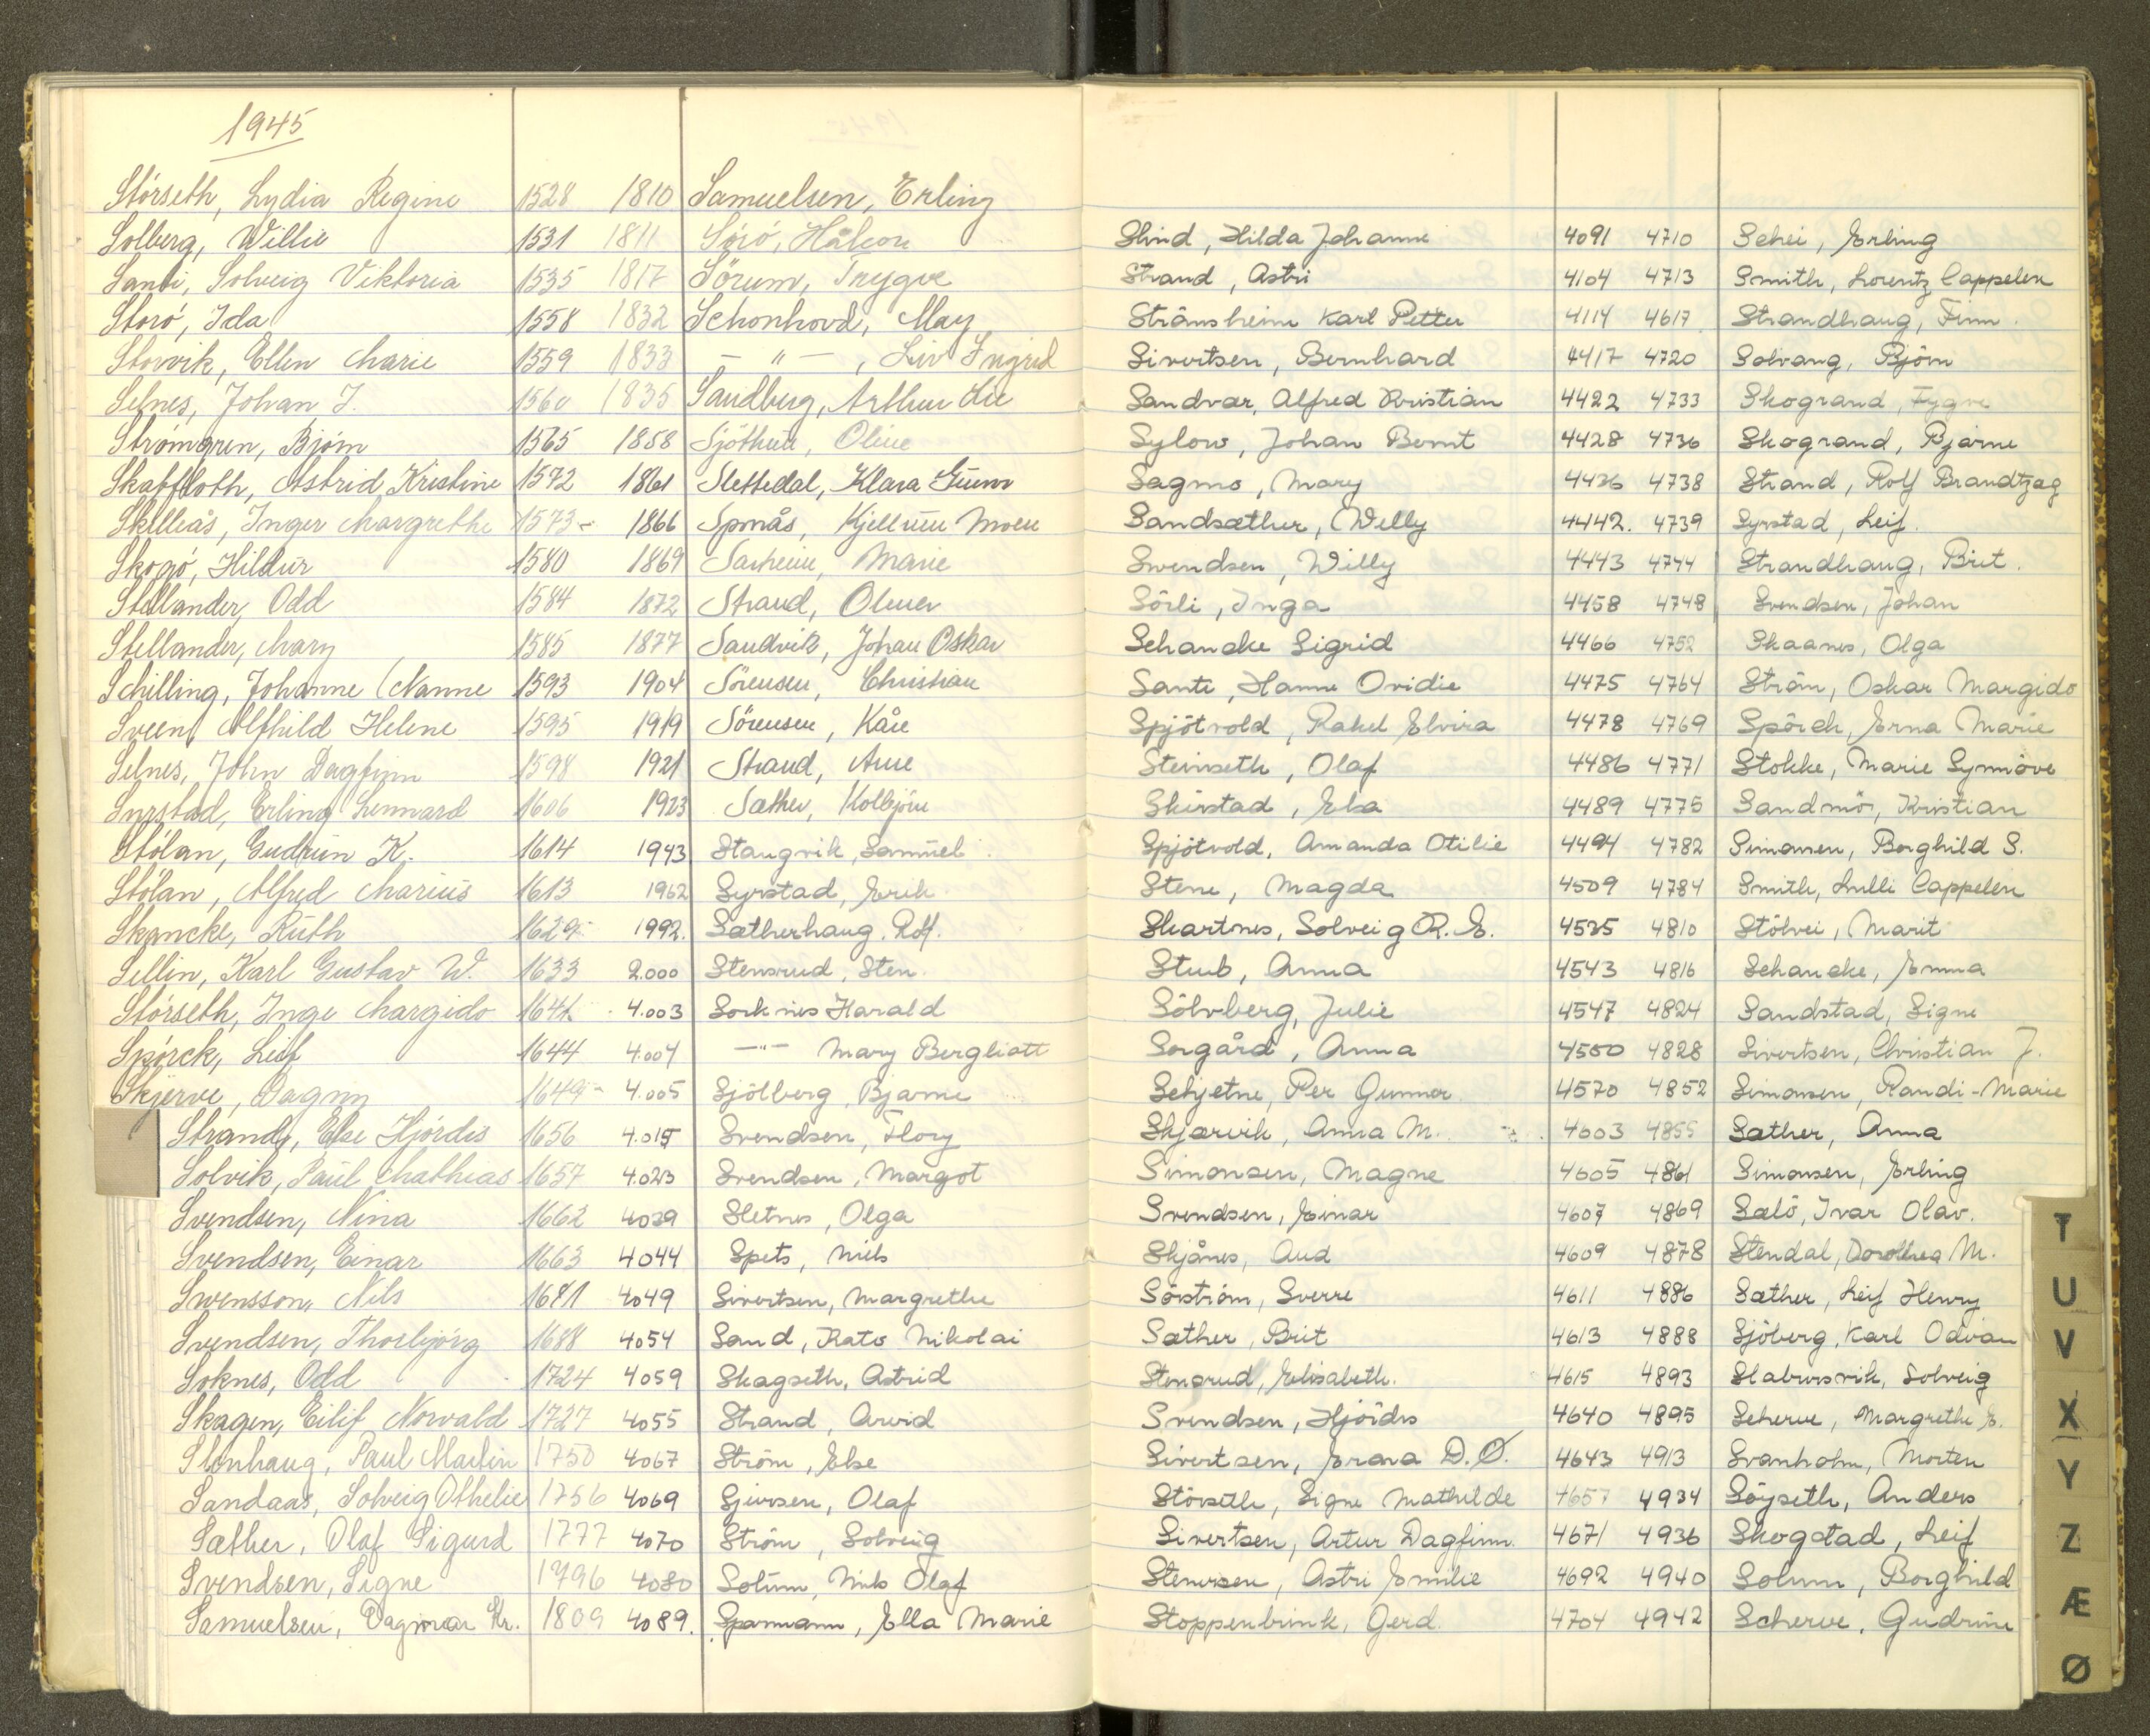 1945
Störseth, Lydia Regine 1528 1810 Samuelsen, Erling
Solberg, Willie 1531 1811 Sörö, Håkon
Santi, Solveig Viktoria 1535 1817 Sörum, Trygve
Storö, Ida 1558 1832 Schonhovd, May
Storvik, Ellen Marie 1559 1833 — " — , Liv Ingrid
Selnes, Johan J. 1560 1835 Sandberg, Arthur
Strömgren, Björn 1565 1858 Oline
Skaffloth, Astrid Kristine 1572 1861 Slettedal, Klara
Skilleås, Inger Margrethe 1573 - 1866 Moen
Skogö, Hildur 1580 1869 Marie
Stellander, Odd 1584 1872 Strand,
Stellander, Mary 1585 1877 Sandvik, Johan Oskar
Schilling, Johanne (Nanne 1593 1904 Sörensen, Christian
Sveen, Alfhild Helene 1595 1919 Sörensen, Kåre
Selnes, John Dagfinn 1598 1921 Strand, Arne
Erling Lennard 1606 1923 Sæther, Kolbjörn
Stölan, Gudrun K. 1614 1943 Stangvik, Samuel
Stölan, Alfred Marius 1613 1962 Syrstad, Erik
Skancke, Ruth 1629 - 1992. Sætherhaug, Rolf.
Sellin, Karl Gustav W. 1633 2.000 Stensrud, Sten.
Störseth, Inge Margido 1641 4.003 Soknes Harald
Spörck, Leif 1644 4.004 — " — Mary Bergliott
Skjerve, Dagny 1649 - 4.005 Sjölberg, Bjarne
Strand, Else Hjördis 1656 4.015 Svendsen, Flory
Solvik, Paul Mathias 1657 4.023 Svendsen, Margot
Svendsen, Nina 1662 4029 Sletnes, Olga
Svendsen, Einar 1663 4044 Spets, Niels
Swensson, Nils 1681 4049 Sivertsen, Margrethe
Svendsen, Thorbjörg 1688 4054 Sand, Kato Nikolai
Soknes, Odd 1724 4059 Skagseth, Astrid
Skagen, Eilif Norvald 1727 4055 Strand, Arvid
Stenhaug, Paul Martin 1750 4067 Ström, Else
Sandaas, Solveig Othelie 1756 4069 Sjursen, Olaf
Sæther, Olaf Sigurd 1777 4070 Ström, Solveig
Svendsen, Signe 1796 4080 Solum, Nils Olaf
Samuelsen, Dagmar Kr. 1809 4089. Sparmann, Ella Marie
Slind, Hilda Johanne 4091 4710 Schei, Erling
Strand, Astri 4104 4713 Smith, Lorentz Cappelen
Strömsheim Karl Petter 4114 4617 Strandhaug, Finn.
Sivertsen, Bernhard 4417 4720 Solvang, Björn
Sandvær, Alfred Kristian 4422 4733 Skogrand,
Sylow, Johan Bernt 4428 4736 Skogrand, Bjarne
Sagmo, Mary 4436 4738 Strand, Rolf Brandtzæg
Sandsæther, Willy 4442. 4739 Syrstad, Leif.
Svendsen, Willy 4443 4744 Strandhaug, Brit.
Sörli, Inga 4458 4748 Svendsen, Johan
Schancke Sigrid 4466 4752 Skaanes, Olga
Santi, Hanne Ovidie 4475 4764 Ström, Oskar Margido
Spjötvold, Rakel Elvira 4478 4769 Spörck, Erna Marie
Steinseth, Olaf 4486 4771 Stokke, Marie Synnöve
Skirstad, Elsa 4489 4775 Sandmo, Kristian
Spjötvold, Amanda Otilie 4494 4782 Simonsen, Borghild S.
Stene, Magda 4509 4784 Smith, Lulli Cappelen
Skartnes, Solveig R. E. 4535 4810 Stölvei, Marit
Stub, Anna 4543 4816 Schancke, Emma
Sölvberg, Julie 4547 4824 Sandstad, Signe
Sorgård, Anna 4550 4828 Sivertsen, Christian J.
Schjetne, Per Gunnar 4570 4852 Simonsen, Randi-Marie
Skjærvik, Anna M. 4603 4855 Sæther, Anna
Simonsen, Magne 4605 4861 Simonsen, Erling
Svendsen, Einar 4607 4869 Sælö, Ivar Olav.
Skjånes, Aud 4609 4878 Stendal, Dorothea M.
Söström, Sverre 4611 4886 Sæther, Leif Henry
Sæther, Brit 4613 4888 Sjöberg, Karl Odvan
Stensrud, Elisabeth. 4615 4893 Slabursvik, Solveig
Svendsen, Hjördis 4640 4895 Scherve, Margrethe E.
Sivertsen, D. Ø. 4643 4913 Svanholm, Morten
Störseth, Signe Mathilde 4657 4934 Söyseth, Anders
Sivertsen, Artur Dagfinn. 4671 4936 Skogstad, Leif
Astri Emilie 4692 4940 Solum, Borghild
Stoppenbrink, Gerd. 4704 4942 Scherve, Gudrun
T
U
V
X
Y
Z
Æ
Ø